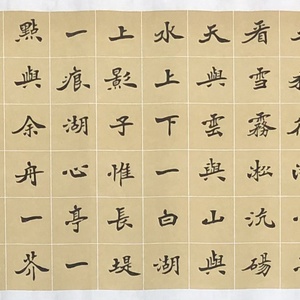 看雪霧凇沆碭
天與雲與山與
水上下一白湖
上影子惟長堤
一痕湖心亭一
點與余舟一芥